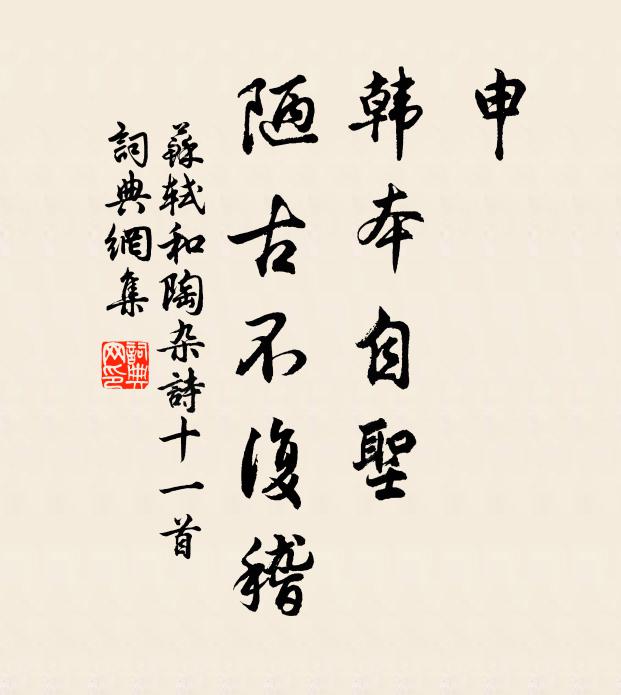 申
韩本自聖
陋古不復稽
蘇轼和陶杂詩十一首
詞典網集
詞典网印